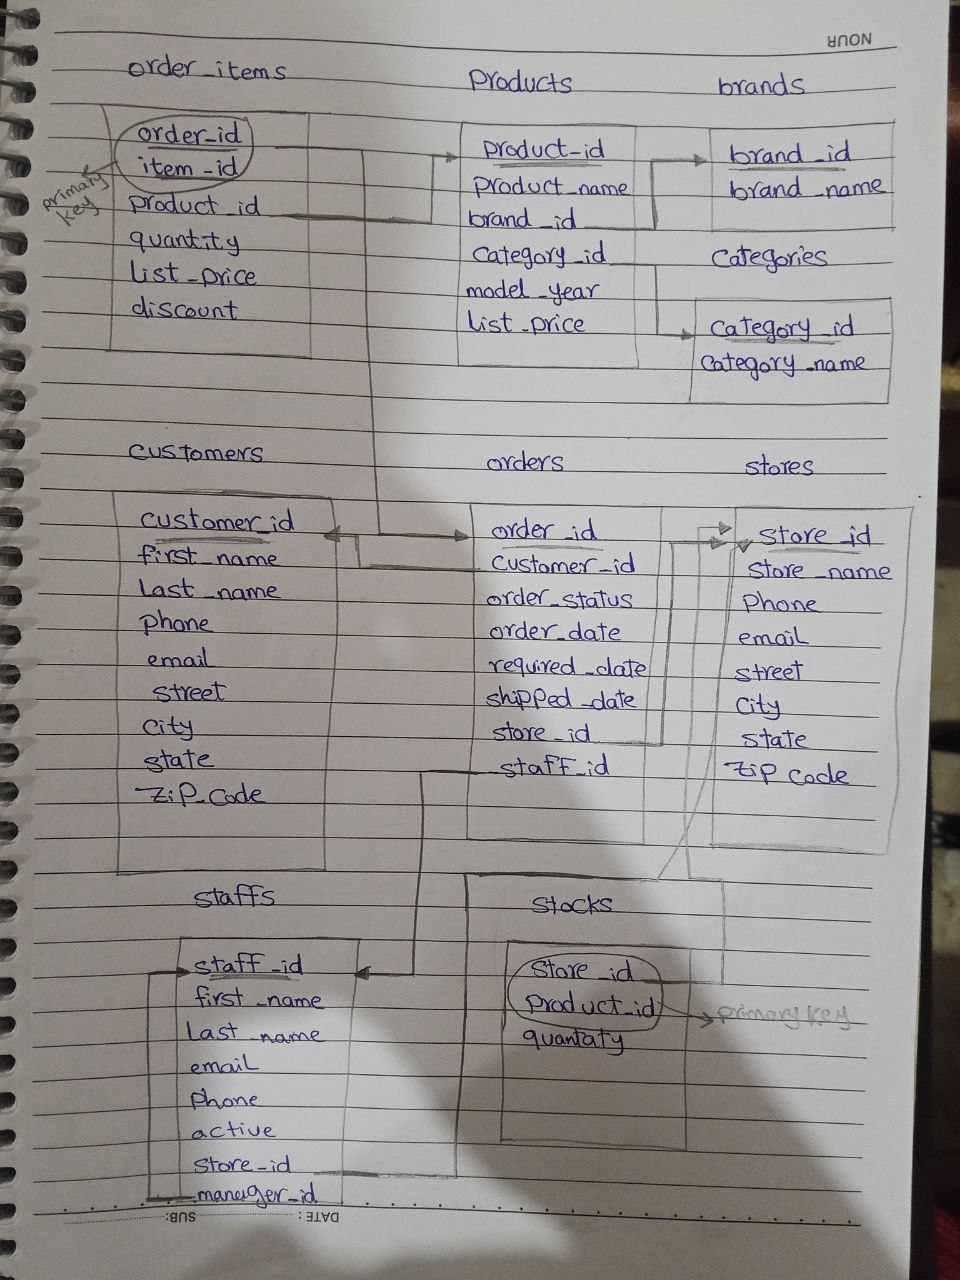 NOUR
order_items
order_id
item_id
product_id
quantity
list_price
discount
primary
key
Products
product_id
product_name
brand_id
Category_id
model_year
list_price
brands
brand_id
brand_name
Categories
Category_id
Category_name
customers
customer_id
first_name
Last_name
phone
email
street
City
state
Zip_Code
orders
order_id
Customer_id
order_status
order_date
required_date
shipped_date
store_id
staff_id
stores
store_id
store_name
Phone
email
street
City
state
Zip_code
staffs
staff_id
first_name
Last_name
email
Phone
active
store_id
manager_id
stocks
store_id
Product_id
quantaty
primary key
DATE :
SUB: